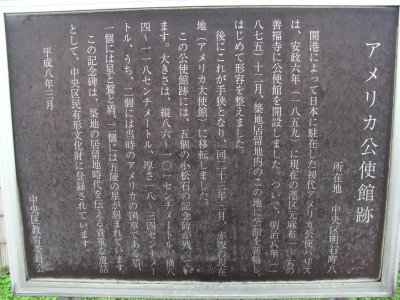 アメリカ公使館跡
所在地 中央区明石町八
開港によって日本に駐在した初代アメリカ公使ハリス
は、安政六年(一八五九)に現在の港区元麻布一丁目の
善福寺に公使館を開設しました。ついで、明治八年(一
八七五)十二月、築地居留地内のこの地に公館を新築し、
はじめて形容を整えました。
後にこれが手狭となり、同二十三年三月、赤坂の現在
地(アメリカ大使館)に移転しました。
この公使館跡には、五個の小松石の記念碑が残ってい
ます。大きさは、縦八六〜一〇一センチメートル、横八
四〜一一八センチメートル、厚さ一八〜三四センチメー
トル、うち、二個には当時のアメリカの国章である盾、
一個には星と鷲と盾、二個には五稜の星が刻まれています。
この記念碑は、築地の居留地時代を伝える貴重な遺品
として、中央区民有形文化財に登録されています。
平成八年三月
中央区教育委員会